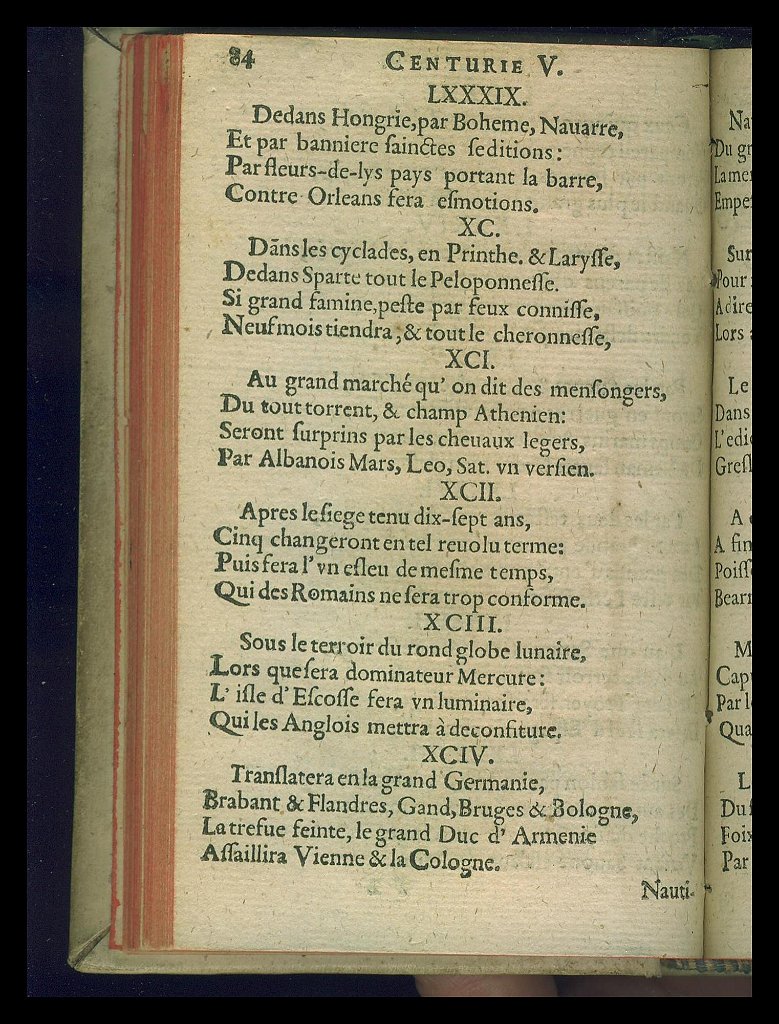 84 CENTURIE V.
LXXXIX.
Dedans Hongrie,par Boheme, Nauarre,
Et par banniere ſainctes ſeditions:
Par fleurs-de-lys pays portant la barre,
Contre Orleans fera eſmotions.
XC.
Dãns les cyclades, en Printhe. & Laryſſe,
Dedans Sparte tout le Peloponneſſe.
Si grand famine,peſte par feux conniſſe,
Neuf mois tiendra ; & tout le cheronneſſe,
XCI.
Au grand marché qu' on dit des menſongers,
Du tout torrent, & champ Athenien:
Seront ſurprins par les cheuaux legers,
Par Albanois Mars, Leo, Sat. vn verſien.
XCII.
Apres le ſiege tenu dix-ſept ans,
Cinq changeront en tel reuolu terme:
Puis fera l' vn eſleu de meſme temps,
Qui des Romains ne ſera trop conforme.
XCIII.
Sous le terroir du rond globe lunaire,
Lors que ſera dominateur Mercure:
L' iſle d' Eſcoſſe fera vn luminaire,
Qui les Anglois mettra à deconfiture.
XCIV.
Tranſlatera en la grand Germanie,
Brabant & Flandres, Gand, Bruges & Bologne,
La trefue feinte, le grand Duc d' Armenie
Aſſaillira Vienne & la Cologne.
Nauti-
Na
Du gr
La me
Empe
Sur
Pour
A dire
Lors
Le
Dans
L'edi
Greſl
A
A fin
Poiſſ
Bearn
M
Cap
Par l
Qua
L
Du
Foix
Par